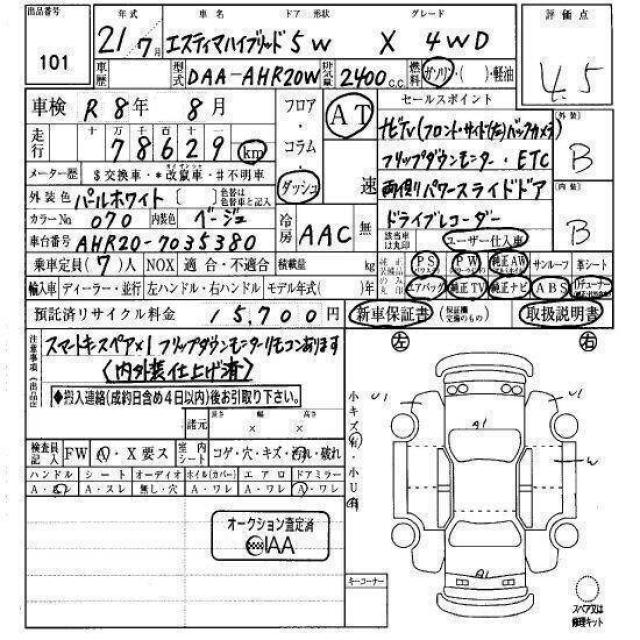 出品番号 年式 車名 ドア 形状 グレード 評価点
101 21/7月 エスティマハイブリッド 5W X 4WD 4.5
車歴 型式 DAA-AHR20W 排気量 2400 C.C. 燃料 ガソリン・( )・軽油
車検 R8年 8月 フロア・コラム・ダッシュ AT 速 セールスポイント
走行 十 万 千 百 十 一
78629 km
ナビTV(フロント・サイド(左)バックカメラ) 外装 B
フリップダウンモニター・ETC
メーター歴 $交換車・*改竄車・♯不明車
両側パワースライドドア 内装 B
外装色 パールホワイト 〔 〕 色替は色替と記入
ドライブレコーダー
カラーNo 070 内装色 ベージュ 冷房 AAC 無
該当車は丸印 ユーザー仕入車
車台番号 AHR20-7035380
乗車定員(7)人 NOX 適合・不適合 積載量 kg PS PW 純正AW サンルーフ 革シート
輸入車 ディーラー・並行 左ハンドル・右ハンドル モデル年式( )年 エアバッグ 純正TV 純正ナビ ABS
預託済リサイクル料金 15,700円 新車保証書 (保証継交換のもの) 取扱説明書
注意事項(出品店
スマートキースペア×1 フリップダウンモニターリモコンあります
(内外装仕上げ済)
◆搬入連絡(成約日含め4日以内)後お引取り下さい。
諸元 長さ 幅 高さ
× ×
左 右
小キズ有・小U有
U1 A1 U1
W
A1
検査員記入 FW ・X要ス 室内シート コゲ・穴・キズ・汚れ・破れ
ハンドル シート オーディオ ホイル(カバー) エアロ ドアミラー
A・スレ A・スレ 無し・穴 A・ワレ A・ワレ A・ワレ
オークション査定済
IAA
キーコーナー
スペア又は
修理キット